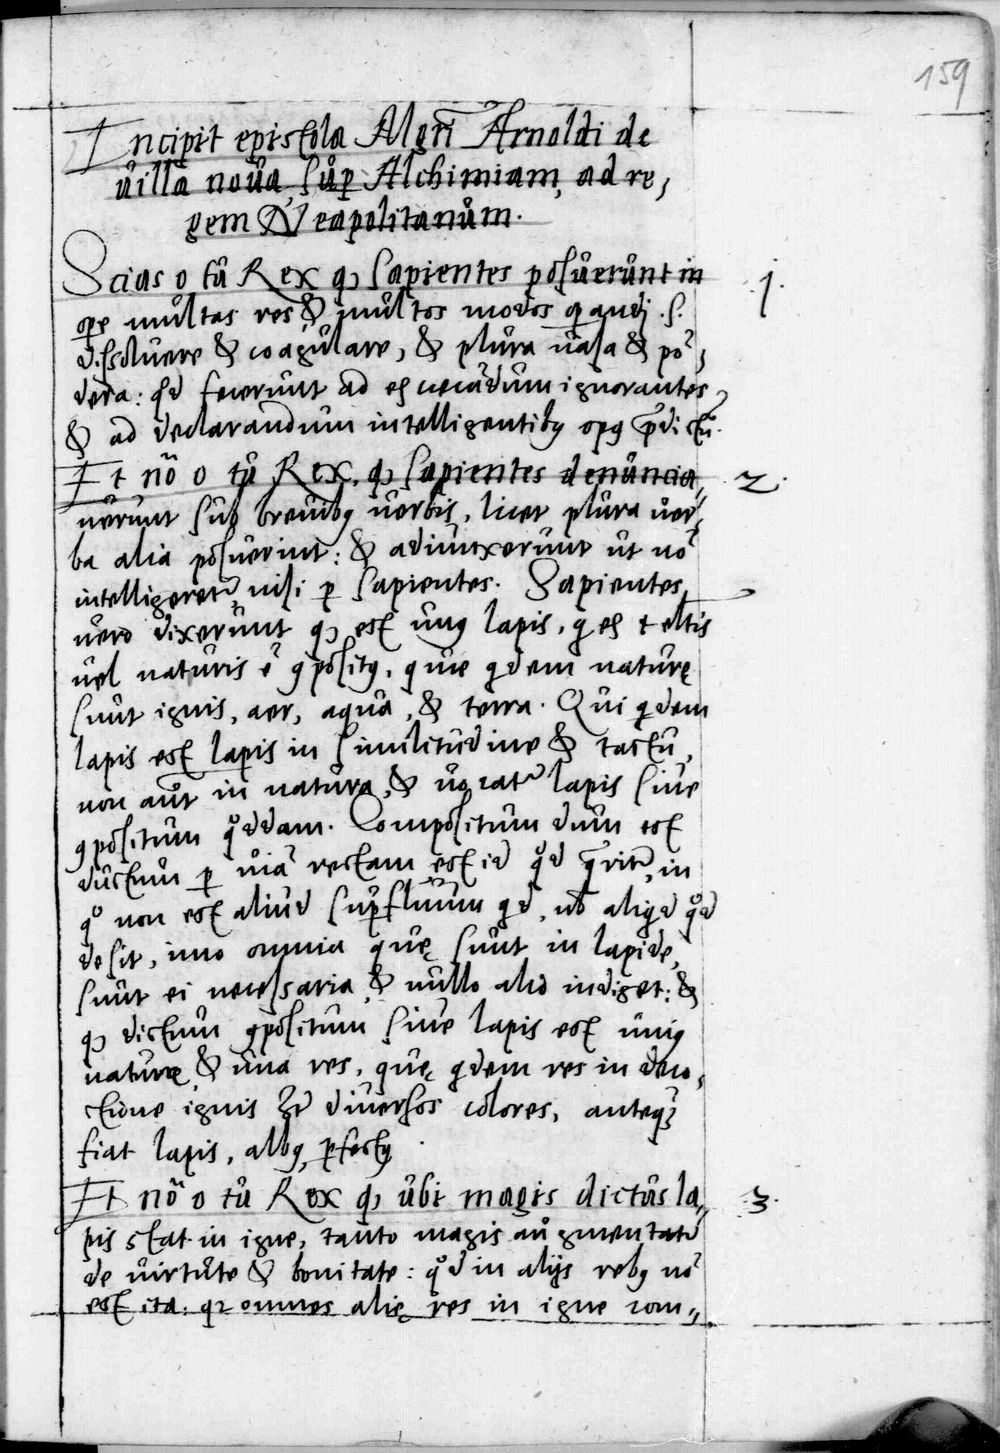 159
Incipit epistola Mgrī Arnoldi de
uilla noua, sup Alchimiam, ad re,
gem Neapolitanum.
Scias o tu Rex q Sapientes posuerunt in .1.
ope multas res & multos modos opandi .s.
dissoluere & coagulare, & plura uasa & pō,
dera: qd fecerunt ad excecādum ignorantes,
& ad declarandum intelligentibꝰ opꝰ p̄dictū.
Et nō o tu Rex, q sapientes denuncia, .2.
uerunt sub breuibꝰ uerbis, licet plura uer,
ba alia posuerint: & adiunxerunt ut nō
intelligeretr nisi p sapientes. Sapientes
uero dixerunt q est unꝰ lapis, q ex 4 eltis
uel naturis ē ꝯpositꝰ, que qdem naturę
sunt ignis, aer, aqua, & terra. Qui qdem
lapis est lapis in similitudine & tactu,
non aut in natura, & uocatr lapis siue
ꝯpositum qddam. Compositum dum est
ductum p uiā rectam est id qd q̄ritr, in
qo non est aliud superfluum qd, uł aliqd qd
desit, imo omnia quę sunt in lapide,
sunt ei necessaria & nullo alio indiget: &
q dictum ꝯpositum siue lapis est uniꝰ
naturę & una res, quę qdem res in deco,
ctione ignis hr diuersos colores, anteq̄
fiat lapis, albꝰ, pfectꝰ.
Et nō o tu Rex q ubi magis dictus la, .3.
pis stat in igne, tanto magis augmentatr
de uirtute & bonitate: qd in alijs rebꝰ nō
est ita: qr omnes alię res in igne com,,